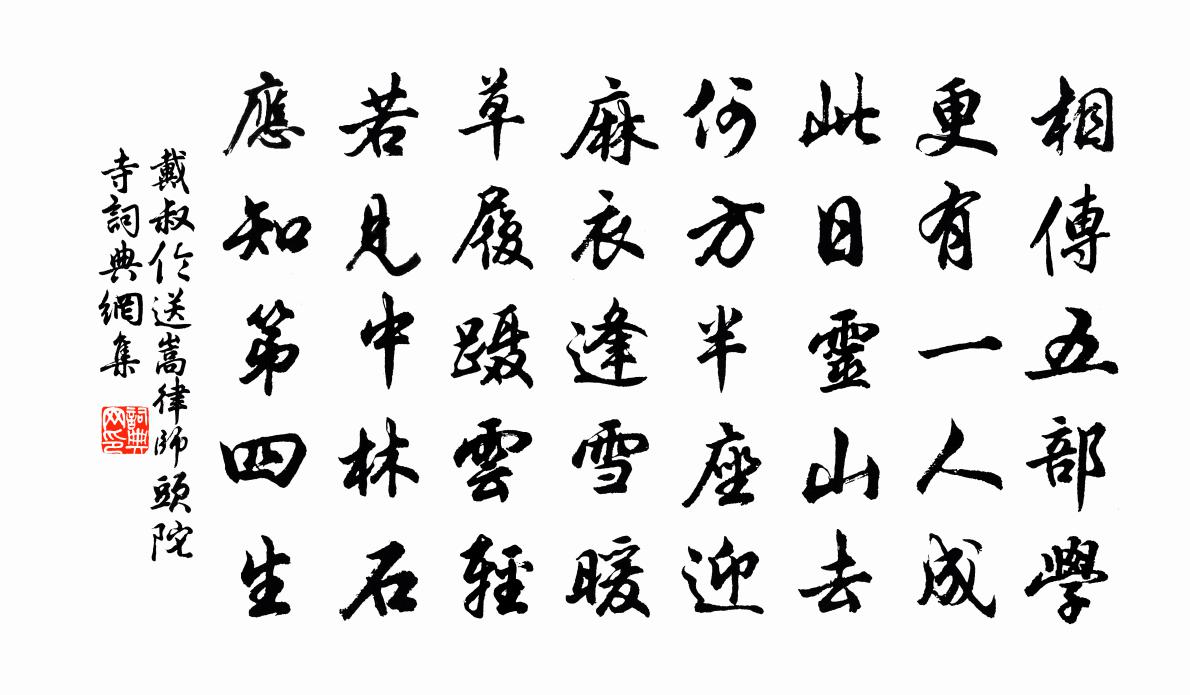 相傳五部學
更有一人成
此日靈山去
何方半座迎
麻衣逢雪暖
草履躡雲輕
若見中林石
應知第四生
戴叔伦送嵩律師頭陀
寺詞典網集
詞典
网印